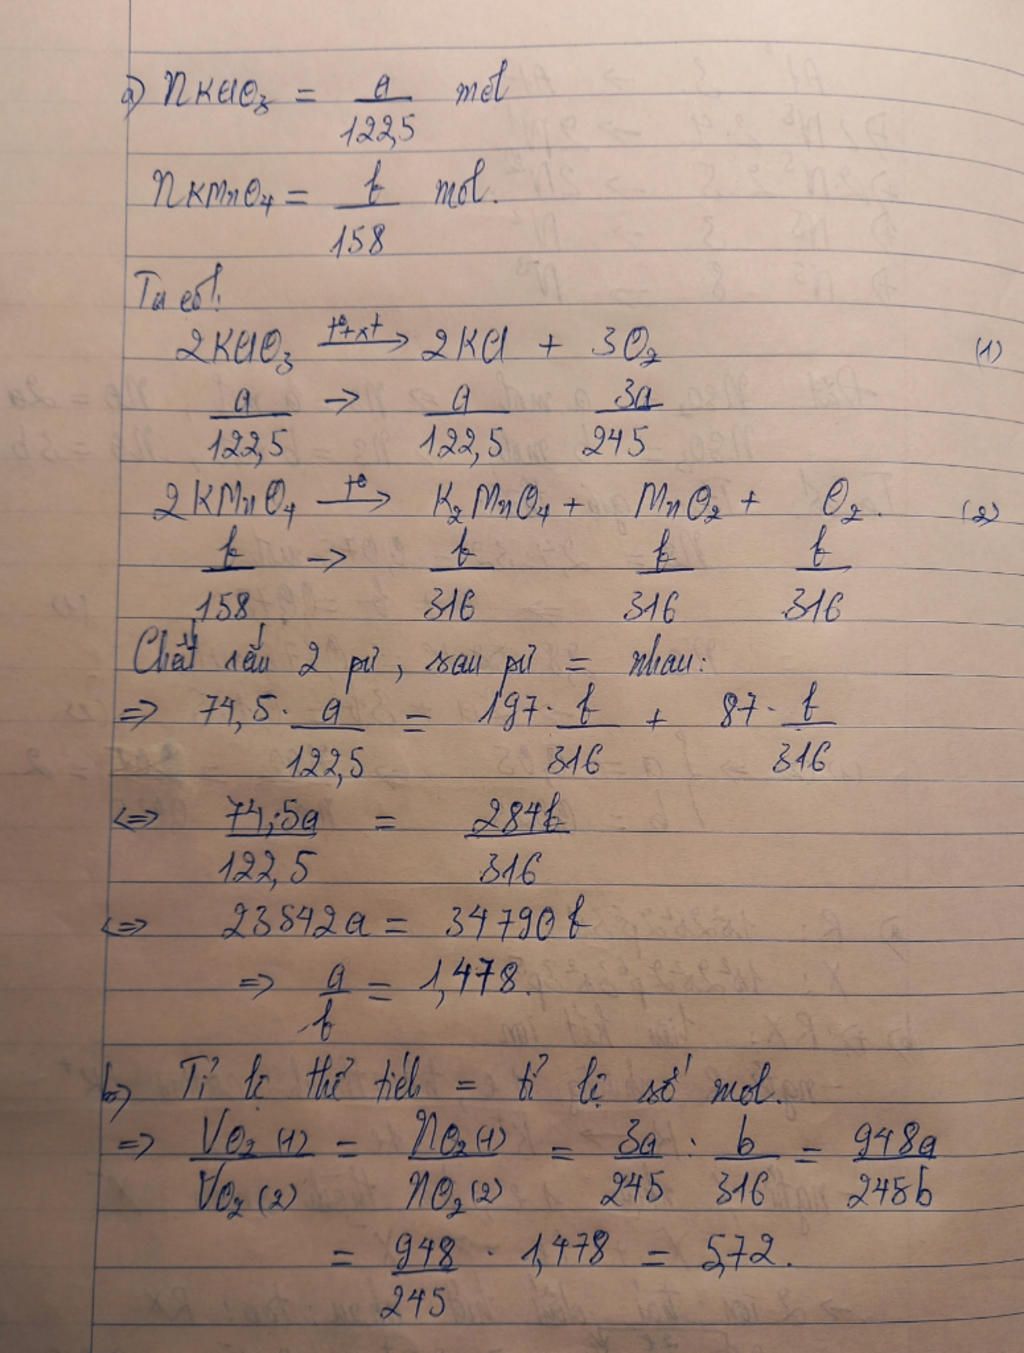 a) nKClO3 = a/122,5 mol
nKMnO4 = b/158 mol.
Ta có:
2KClO3 –t°, xt→ 2KCl + 3O2 (1)
a/122,5 → a/122,5 3a/245
2KMnO4 –t°→ K2MnO4 + MnO2 + O2. (2)
b/158 → b/316 b/316 b/316
Chất rắn 2 pứ, sau pứ = nhau:
=> 74,5 · a/122,5 = 197 · b/316 + 87 · b/316
<=> 74,5a/122,5 = 284b/316
<=> 23542a = 34790b
=> a/b = 1,478.
b) Tỉ lệ thể tích = tỉ lệ số mol.
=> VO2 (1)/VO2 (2) = nO2 (1)/nO2 (2) = 3a/245 : b/316 = 948a/245b
= 948/245 · 1,478 = 5,72.